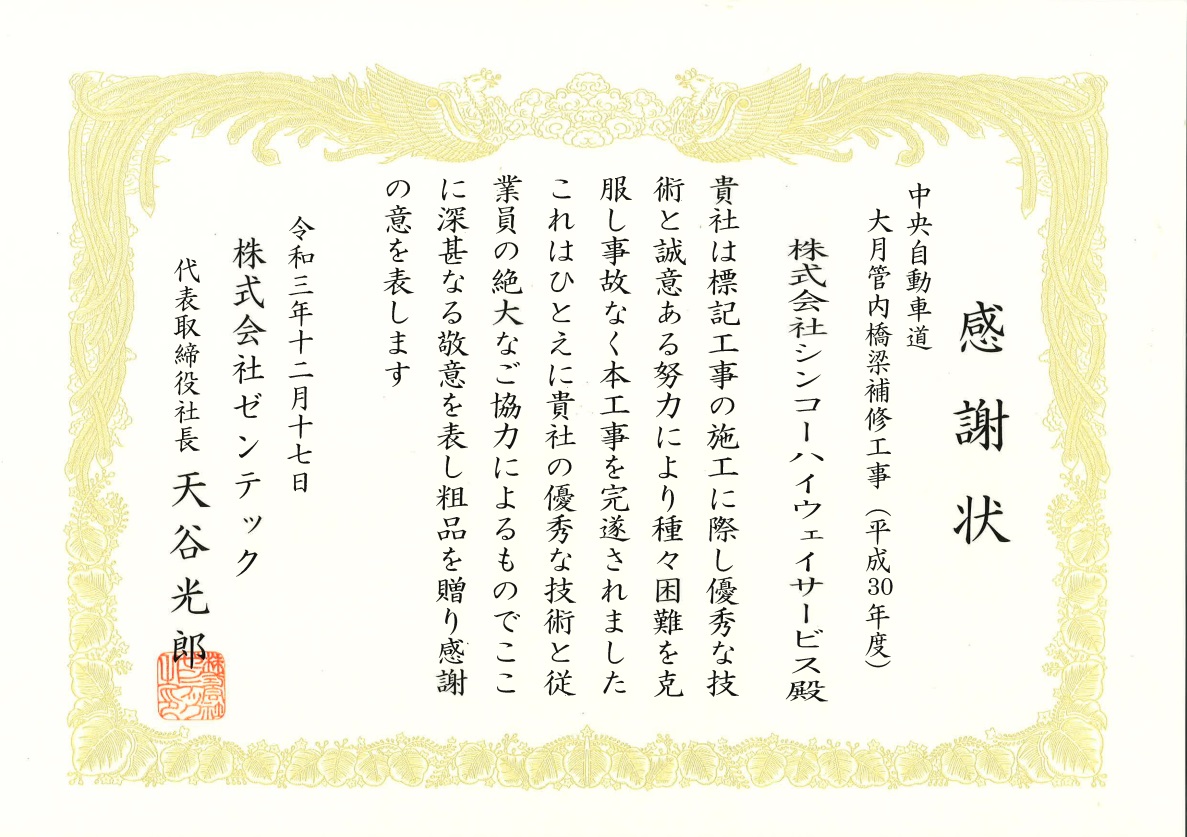 感謝状
中央自動車道
大月管内橋梁補修工事（平成30年度）
株式会社シンコーハイウェイサービス殿
貴社は標記工事の施工に際し優秀な技
術と誠意ある努力により種々困難を克
服し事故なく本工事を完遂されました
これはひとえに貴社の優秀な技術と従
業員の絶大なご協力によるものでここ
に深甚なる敬意を表し粗品を贈り感謝
の意を表します
令和三年十二月十七日
株式会社ゼンテック
代表取締役社長 天谷光郎